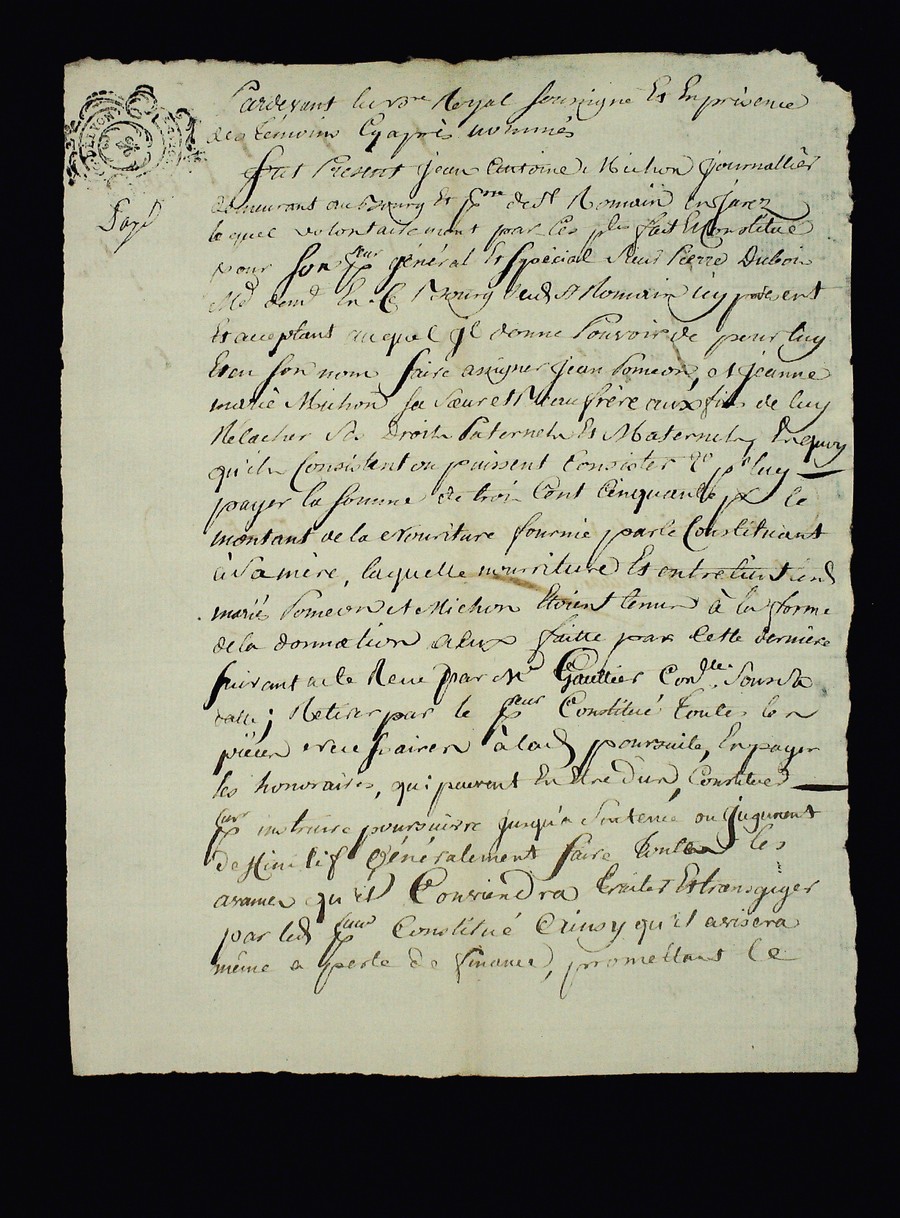 DE LYON
Pardevant le no.re Royal soussigné Et En présence
des témoins Cy après nommés
fut Présent jean Antoine Michon journallier
demeurant au Bourg et p.sse de St Romain en jarez
lequel volontairement par ces p.tes fait Et Constitue
pour son p.eur général Et spécial sieur Pierre Dubois
M.d dem.t En Ce Bourg dud. St Romain icy présent
Et acceptant auquel il donne Pouvoir de pour luy
Et en son nom faire assigner jean Pomeon, et jeanne
marie Michon sa sœur Et Beaufrère aux fins de luy
Relacher ses droits Paternels Et Maternels, En quoy
qu'ils Consistent ou puissent Consister 2° p.r luy
payer la somme de trois Cent Cinquante # le
montant de la Nouriture fournie par le Constituant
à Sa mère, laquelle nourriture Et entretien lesd
mariés Pomeon et Michon Etoient tenus à la forme
de la donnation a eux faitte par Cette dernière
suivant acte Reçu par M.e Gaultier Con.lle Sous sa
datte; Retirer par le p.eur Constitué toutes les
pièces nécessaires à lad poursuite, En payer
les honoraires, qui peuvent En Etre dus, Constituer
p.eur instruire poursuivre jusqu'a Sentence ou jugement
deffinitif Généralement faire toutes les
avances qu'il Conviendra traiter Et transiger
par led p.eur Constitué Ainsy qu'il avisera
même a perte de finance, promettant le